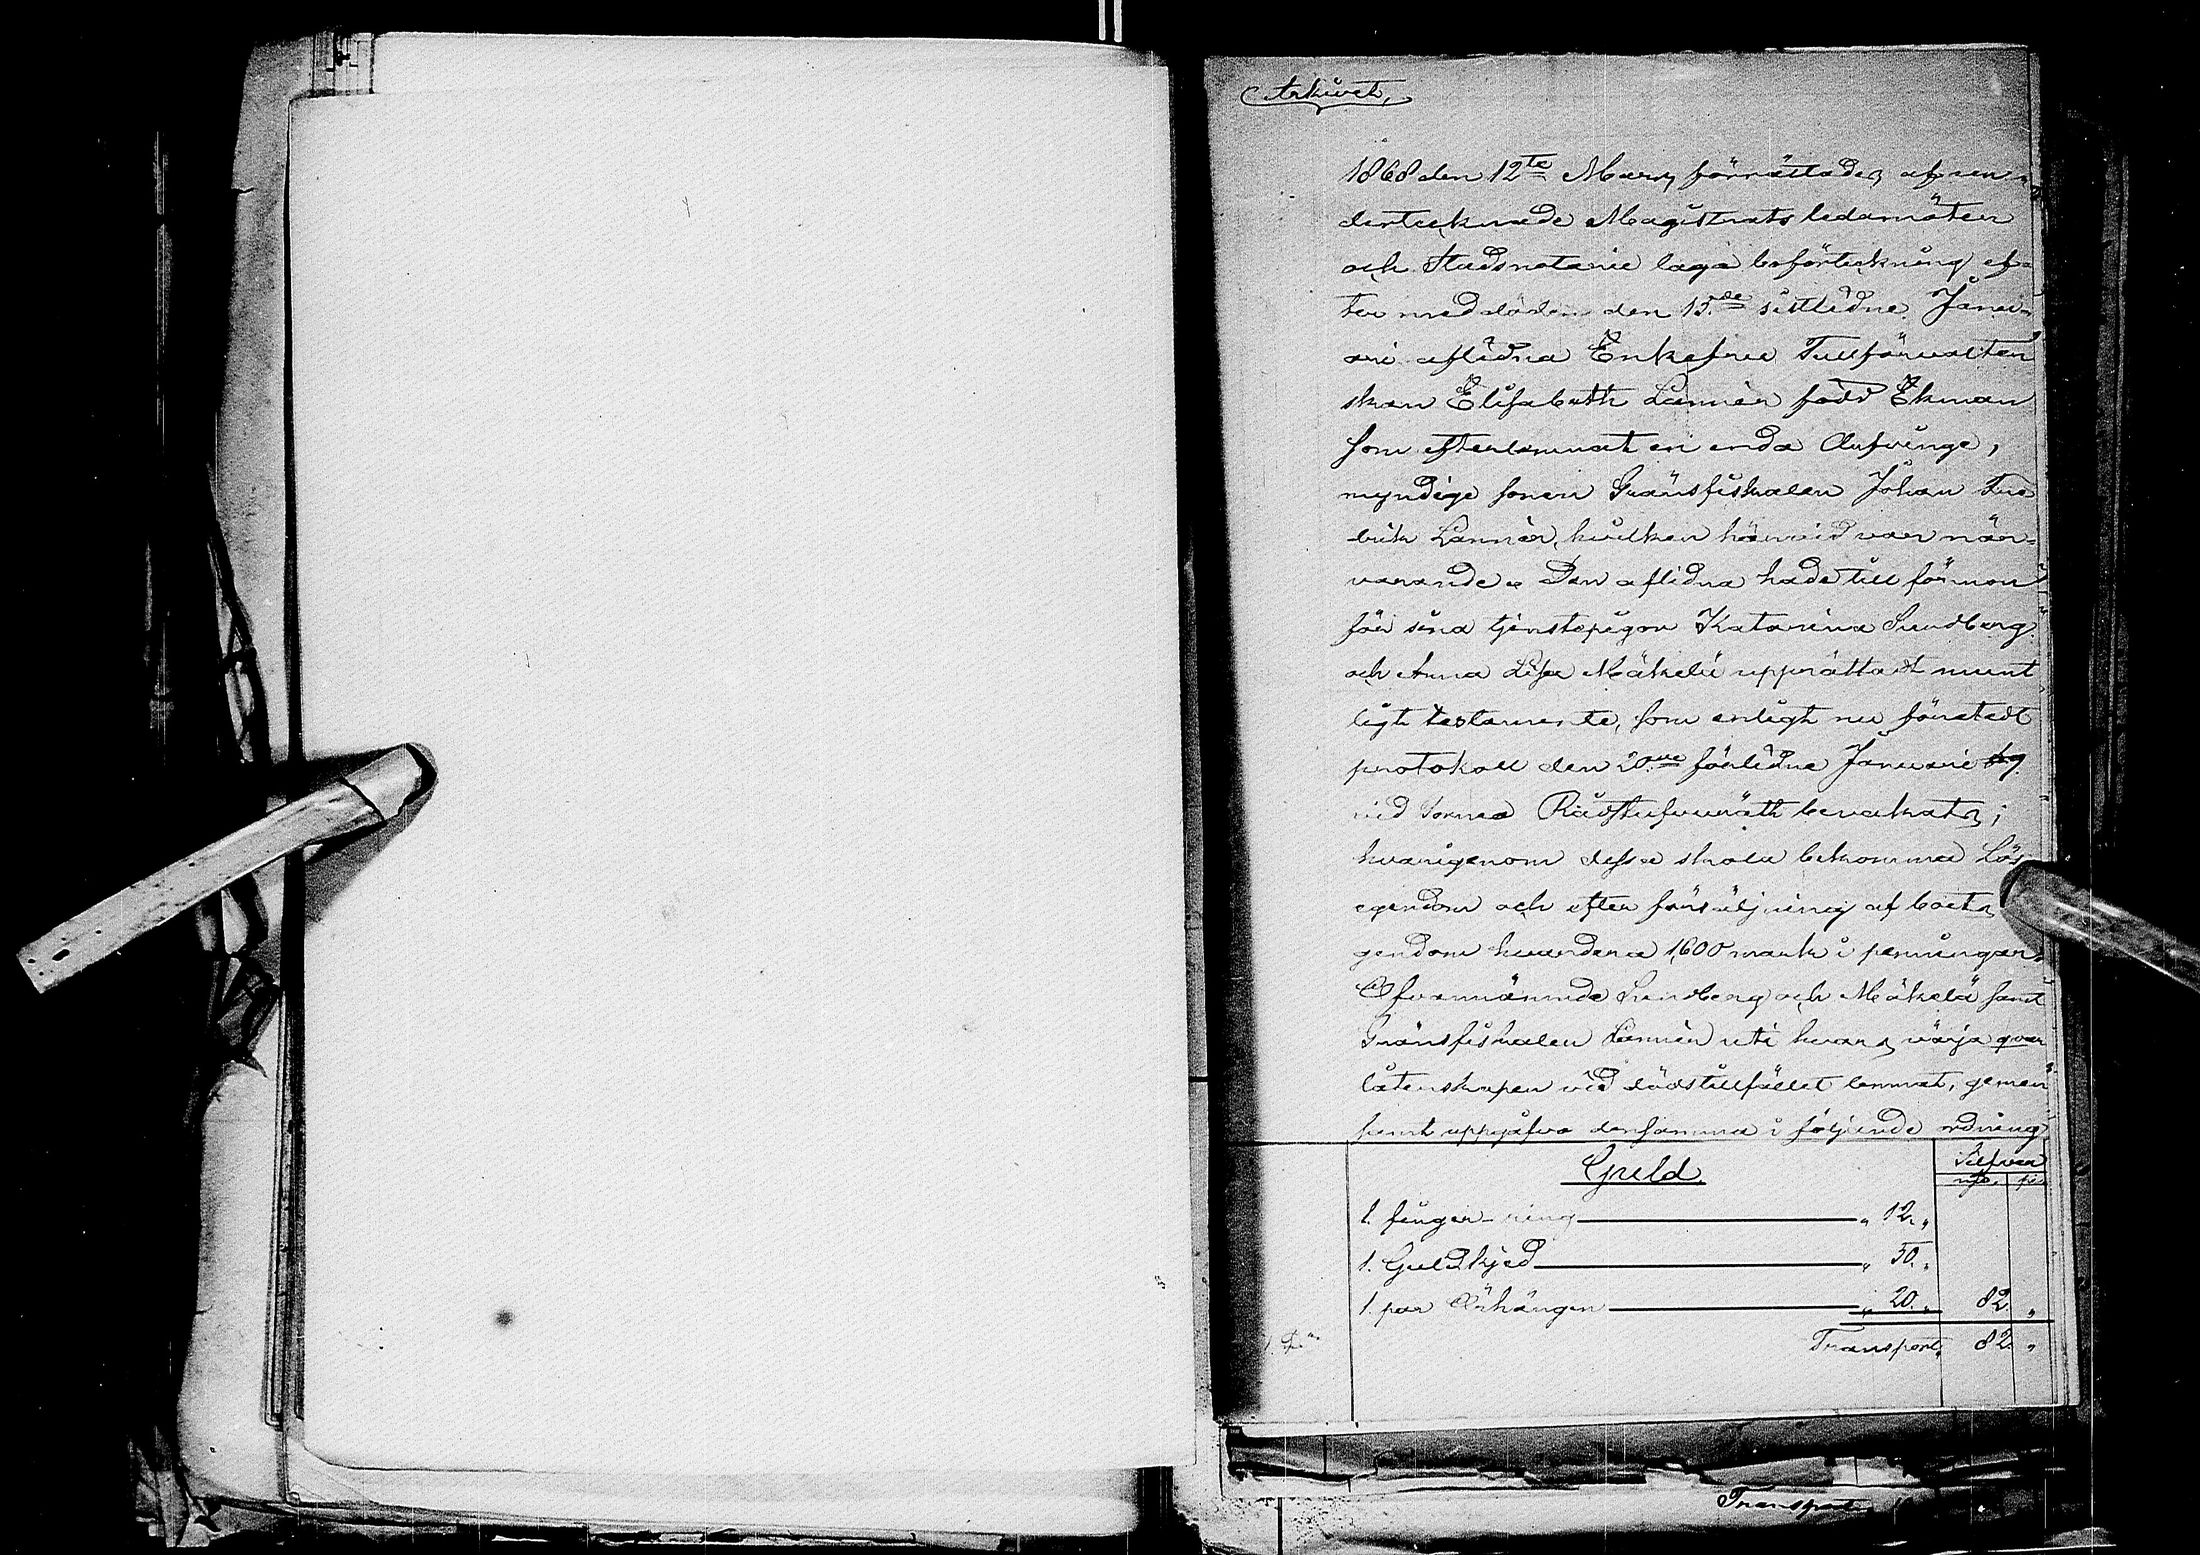 Arkivet,
1868 den 12te Mars förrättades af un-
dertecknade Magistrats ledamöter
och Stadsnotarie laga boförteckning ef-
ter med döden den 15de sistlidne Janu-
ari aflidna Enkefru Tullförvaltar
skan Elisabeth Lannér född Ekman
som efterlemnat en enda Arfvinge,
myndige sonen Gränsfiskalen Johan Fred
rik Lannér, hvilken härvid var när-
varande. Den aflidna hade till förmon
för sina tjenstepigor Katarina Sundberg
och Anna Lisa Mäkelä upprättadt munt
ligt testamente, som enligt nu företedt
protokoll den 20de förlidne Januarii
vid Torneå Rådstufvurätt bevakats;
hvarigenom dessa skola bekomma lös
egendom och efter försäljning af boets
gendom hvardera 1,600 mark i penningar.
Ofvannämnde Sundberg och Mäkelä samt
Gränsfiskalen Lannér uti hvars värja qvar
låtenskapen vid dödstillfället lemnat, gemen
samt uppgåfvo densamma i följande ordning
Silfver
Guld
1. finger-ring " 12. "
1. Guldkjed " 50. "
1. par Örhängen " 20. " 82. "
Transport, 82. "
Transport